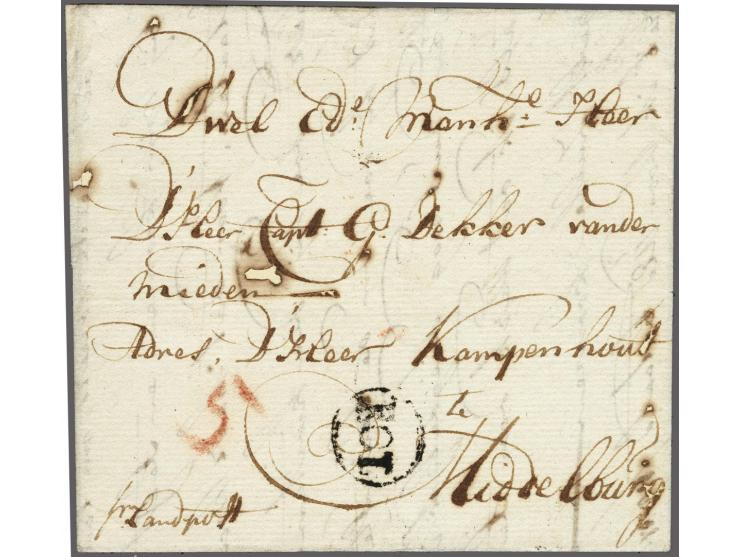 D'wel Ed^e Manh^e Heer
D'Heer Capt G: Dekker vander
mieden
Adres, D'Heer Kampenhout
te
Middelburg
5
fr Landpost